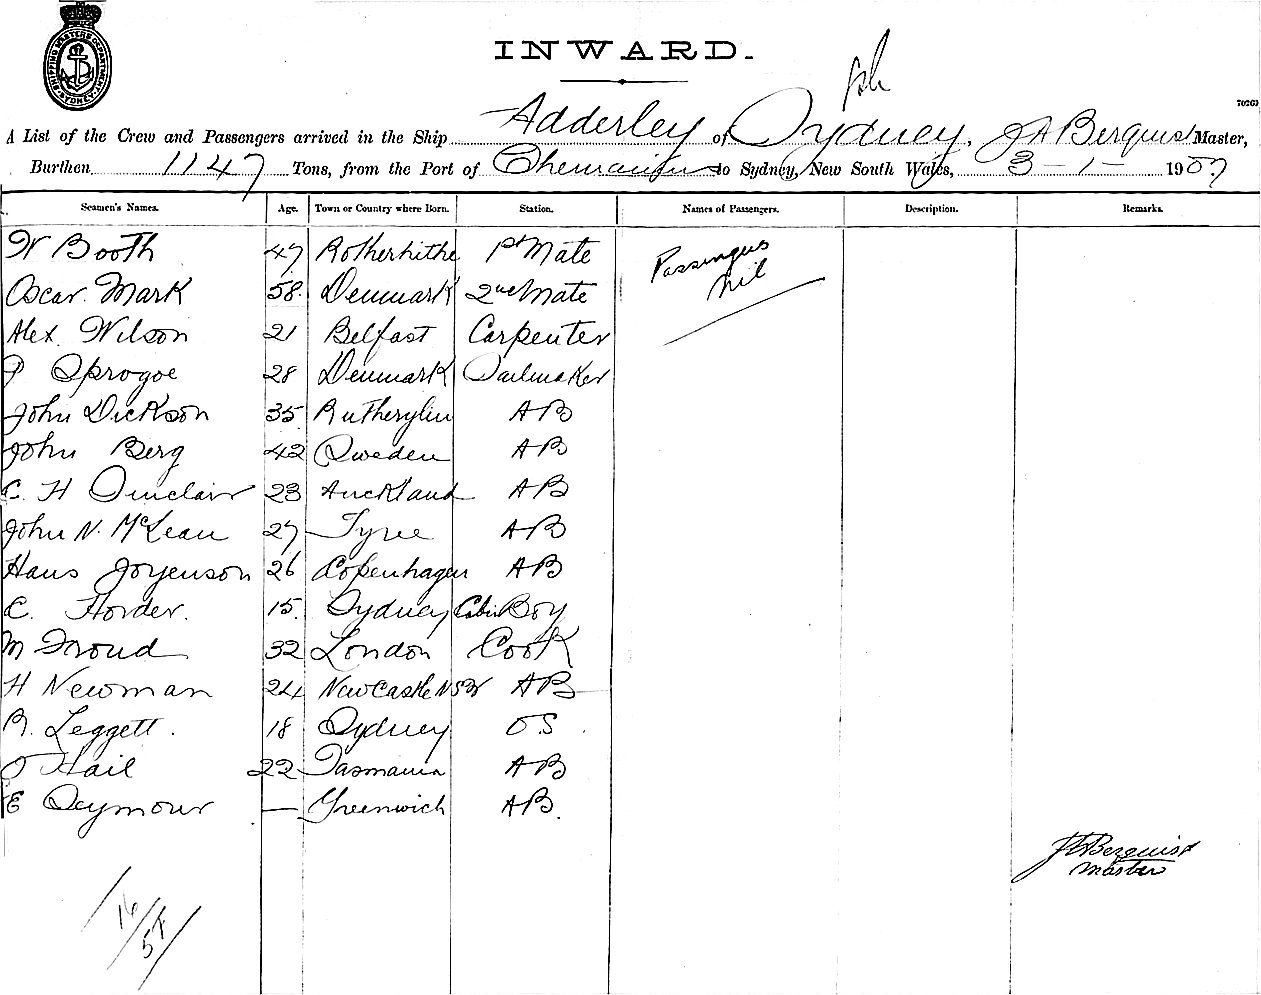 SHIPPING MASTERS DEPARTMENT
SYDNEY
INWARD.
70263
A List of the Crew and Passengers arrived in the Ship Adderley of Sydney, J A Berquist Master,
Burthen 1147 Tons, from the Port of Chemainus to Sydney, New South Wales, 3 - 1 - 1907
Seamen's Names. Age. Town or Country where Born. Station. Names of Passengers. Description. Remarks.
W Booth 47 Rotherhithe 1st Mate
Passengers
Nil
Oscar Mark 58 Denmark 2nd Mate
Alex. Wilson 21 Belfast Carpenter
P Sprogoe 28 Denmark Sailmaker
John Dickson 35 Rutherglen AB
John Berg 42 Sweden AB
C. H Sinclair 23 Auckland AB
John N. McLean 27 Tyree AB
Hans Jorgenson 26 Copenhagen AB
C. Horder. 15. Sydney Cabin Boy
M Froud 32 London Cook
H Newman 24 Newcastle NSW AB
R. Leggett. 18 Sydney OS.
Hail 22 Tasmania AB
E Seymour — Greenwich AB.
J A Berquist
Master
16